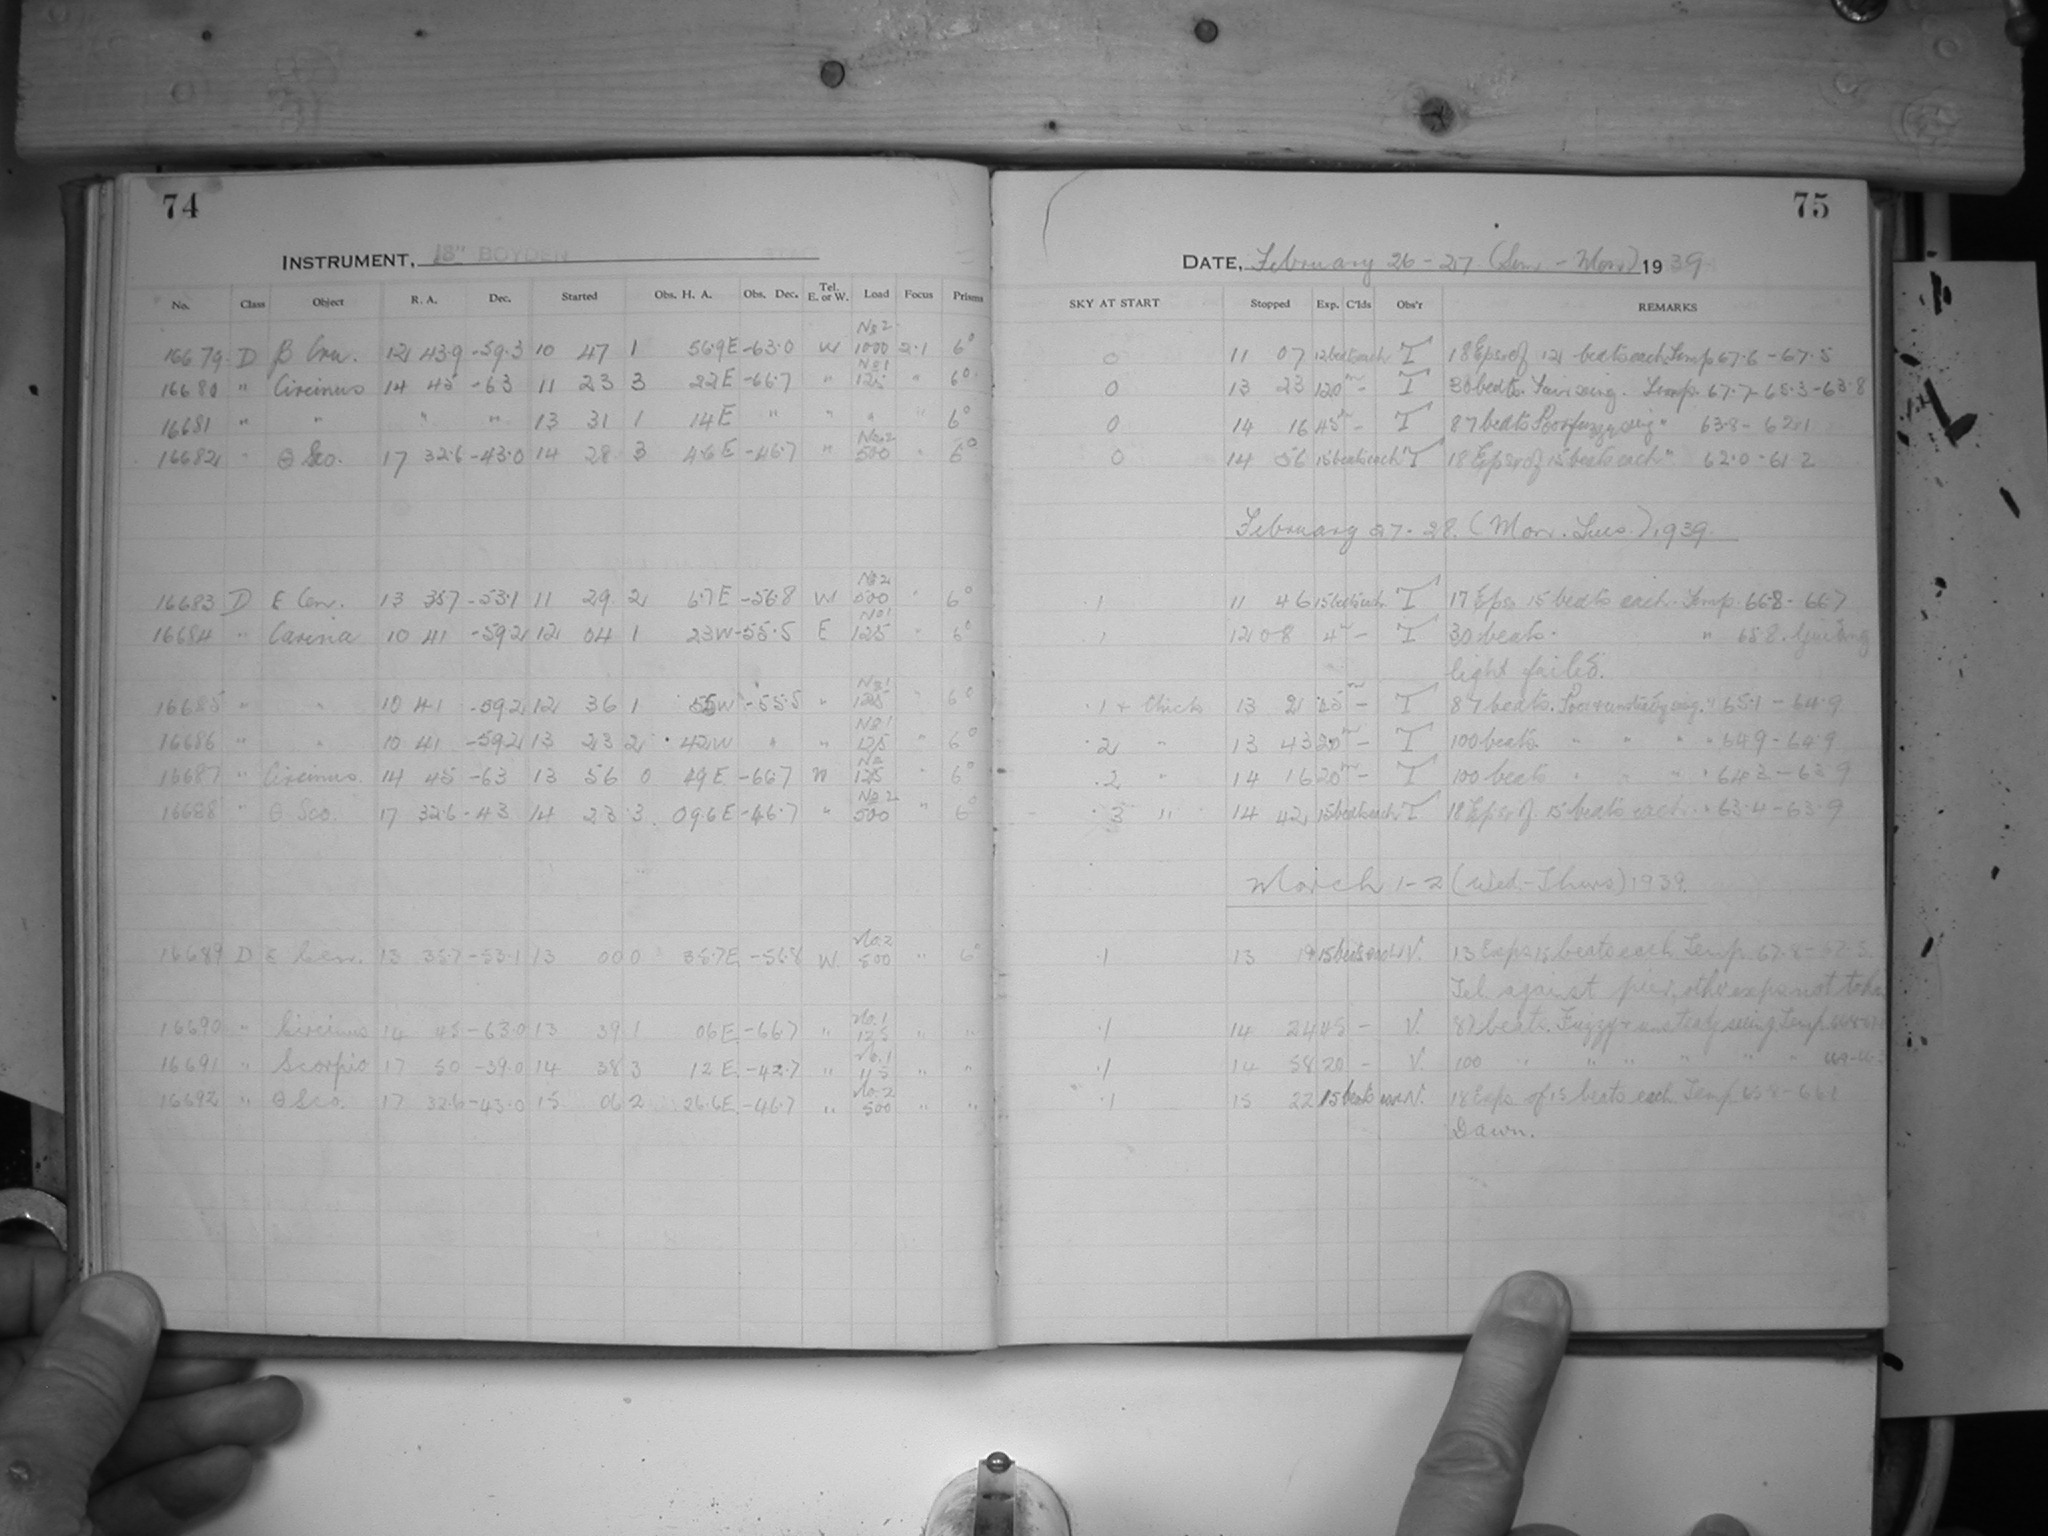 74
INSTRUMENT, 13" BOYDEN
No. Class Object R. A. Dec. Started Obs. H. A. Obs. Dec. Tel. E. or W. Load Focus Prisms
No 2
16679 D β Cru. 12 43.9 -59.3 10 47 1 56.9E -63.0 W 1000 2.1 6°
No 1
16680 " Circinus 14 45 -63 11 23 3 22E -66.7 " 125 " 6°
16681 " " " " 13 31 1 14E " " " " 6°
No 2
16682 " θ Sco. 17 32.6 -43.0 14 28 3 4.6E -46.7 " 500 " 6°
No 2
16683 D ε Cen. 13 35.7 -53.1 11 29 2 6.7E -56.8 W 500 " 6°
No 1
16684 " Carina 10 41 -59.2 12 04 1 23W -55.5 E 125 " 6°
No 1
16685 " " 10 41 -59.2 12 36 1 55W -55.5 " 125 " 6°
No 1
16686 " " 10 41 -59.2 13 23 2 42W " " 125 " 6°
No
16687 " Circinus. 14 45 -63 13 56 0 49E -66.7 W 125 " 6°
No 2
16688 " θ Sco. 17 32.6 -43 14 23 3 09.6E -46.7 " 500 " 6°
No. 2
16689 D ε Cen. 13 35.7 -53.1 13 00 0 35.7E -56.8 W 500 " 6°
No. 1
16690 " Circinus 14 45 -63.0 13 39 1 06E -66.7 " 125 " "
No. 1
16691 " Scorpio 17 50 -39.0 14 38 3 12E -42.7 " "
No. 2
16692 " θ Sco. 17 32.6 -43.0 15 06 2 26.6E -46.7 " 500 " "
75
DATE, February 26-27 (Sun.-Mon.) 1939
SKY AT START Stopped Exp. C'lds Obs'r REMARKS
0 11 07 12 beats each T 18 Exps of 12 beats each Temp 67.6-67.5
0 13 23 120m - T 30 beats. Fair seeing. Temp. 67.7-65.3-63.8
0 14 16 45m - T 87 beats Poor fuzzy seeing " 63.8-62.1
0 14 56 15 beats each T 18 Exps of 15 beats each " 62.0-61.2
February 27-28. (Mon. Tues.) 1939.
.1 11 46 15 beats each T 17 Exps 15 beats each. Temp. 66.8-66.7
.1 12 08 4m - T 30 beats. " 65.8. Guiding
light failed.
.1 + thick 13 21 45m - T 87 beats. Poor & unsteady seeing. " 65.1-64.9
.2 " 13 43 20m - T 100 beats. " " " " 64.9-64.9
.2 " 14 16 20m - T 100 beats " " " " 64.3-63.9
.3 " 14 42 15 beats each T 18 Exps of 15 beats each. " 63.4-63.9
March 1-2 (Wed.-Thurs) 1939.
.1 13 19 15 beats each V. 13 Exps 15 beats each Temp. 67.8-67.5
Tel. against pier, other exps not
.1 14 24 45 - V. 87 beats. Fuzzy & unsteady seeing Temp
.1 14 58 20 - V. 100 " " " " "
.1 15 22 15 beats each V. 18 Exps of 15 beats each Temp 65.8-66.1
Dawn.